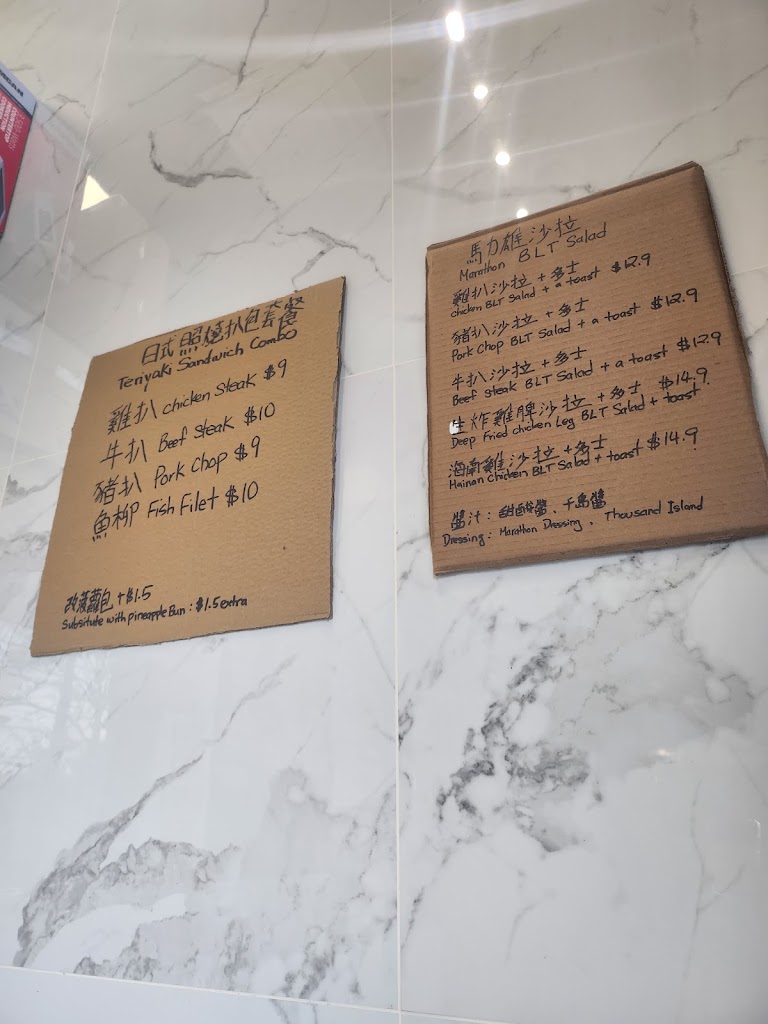 日式照燒扒包套餐
Teriyaki Sandwich Combo
雞扒 chicken steak $9
牛扒 Beef Steak $10
豬扒 Pork Chop $9
魚柳 Fish Filet $10
改菠蘿包 +$1.5
Subsitute with pineapple Bun : $1.5 extra
馬力雄沙拉
Marathon BLT Salad
雞扒沙拉 + 多士 $12.9
chicken BLT Salad + a toast
豬扒沙拉 + 多士 $12.9
Pork Chop BLT Salad + a toast
牛扒沙拉 + 多士 $12.9
Beef steak BLT Salad + a toast
生炸雞脾沙拉 + 多士 $14.9
Deep Fried chicken Leg BLT Salad + toast
海南雞沙拉 + 多士 $14.9
Hainan Chicken BLT Salad + toast
醬汁 : 甜酸醬、千島醬
Dressing : Marathon Dressing 、 Thousand Island